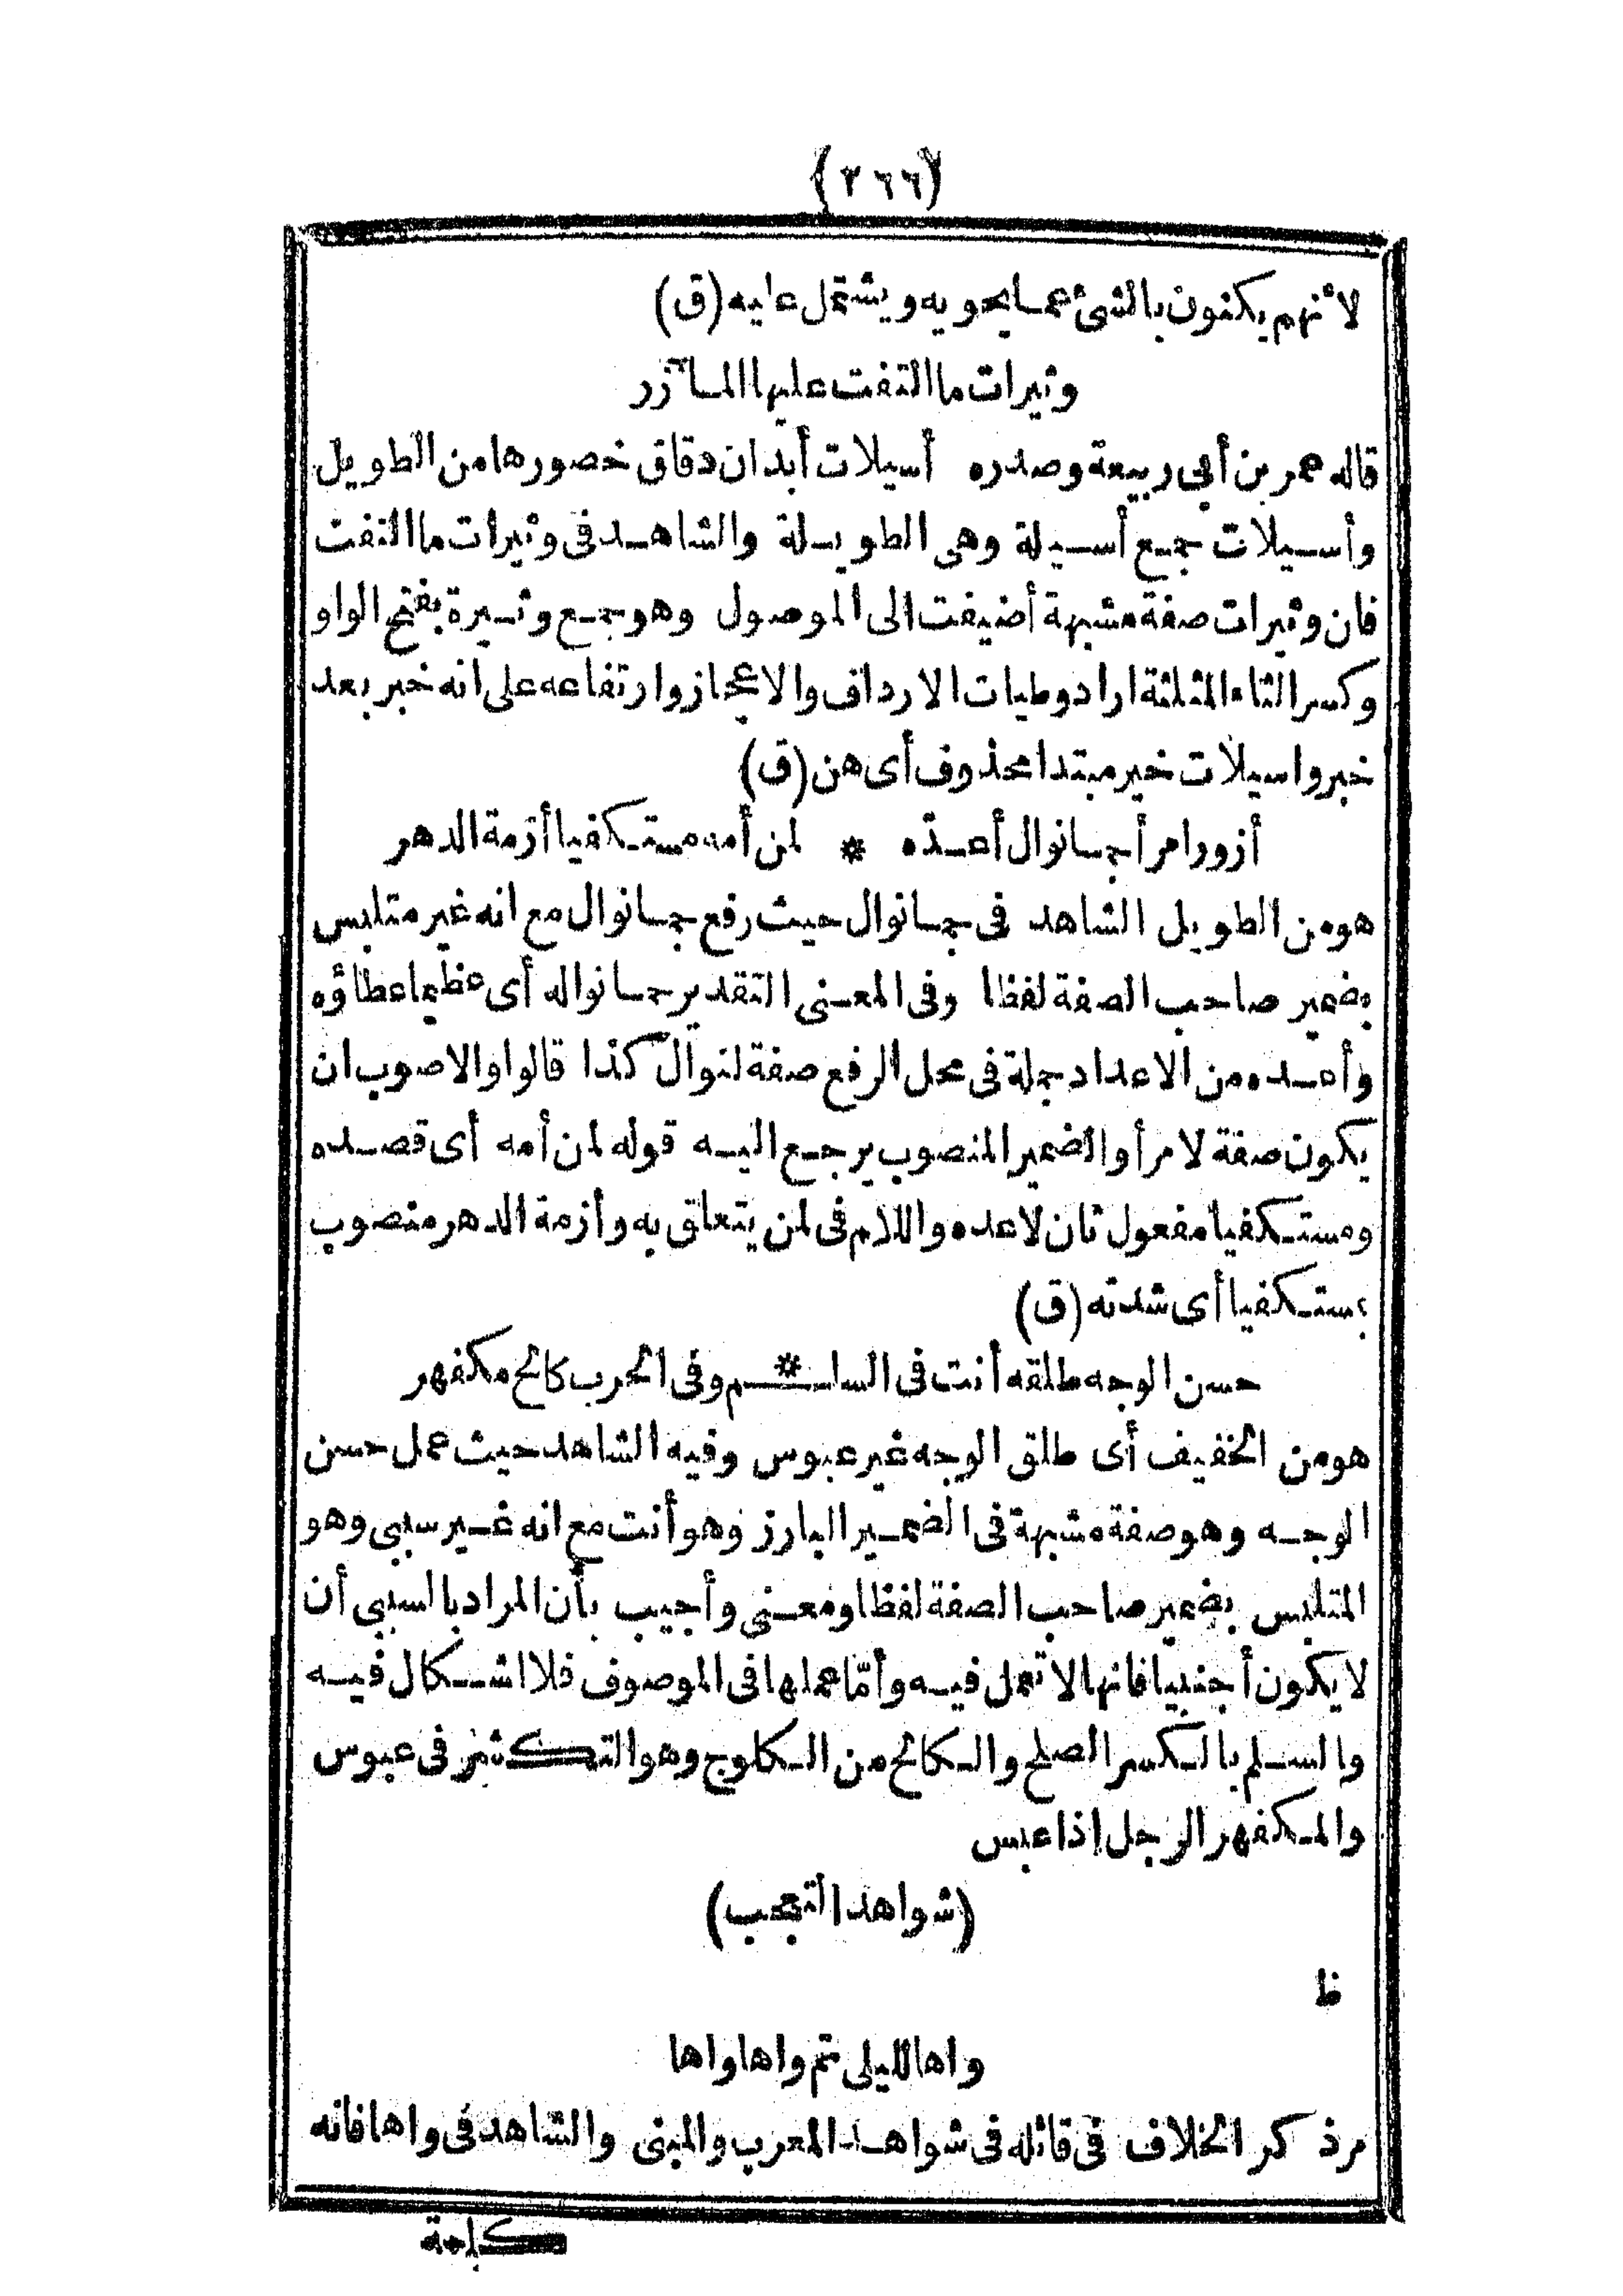 (٢٦٦)
لأنهم يكنون بالشئ عما يحويه ويشتمل عليه (ق)
وثيرات ما التفت عليها المآزر
قاله عمر بن أبي ربيعة وصدره أسيلات أبدان دقاق خصورها من الطويل
وأسيلات جمع أسيلة وهى الطويلة والشاهد فى وثيرات ما التفت
فان وثيرات صفة مشبهة أضيفت الى الموصول وهو جمع وثيرة بفتح الواو
وكسر الثاء المثلثة اراد وطيات الارداف والاعجاز وارتفاعه على انه خبر بعد
خبر واسيلات خبر مبتدا محذوف أى هن (ق)
أزور امرأ جما نوال أعدّه * لمن أمه مستكفيا أزمة الدهر
هو من الطويل الشاهد فى جما نوال حيث رفع جما نوال مع انه غير متلبس
بضمير صاحب الصفة لفظا وفى المعنى التقدير جما نواله أى عظيما عطاؤه
وأعده من الاعداد جملة فى محل الرفع صفة لنوال كذا قالوا والاصوب ان
يكون صفة لامرأ والضمير المنصوب يرجع اليه قوله لمن أمه أى قصده
ومستكفيا مفعول ثان لاعده واللام فى لمن يتعلق به وأزمة الدهر منصوب
بمستكفيا أى شدته (ق)
حسن الوجه طلقه أنت فى السلـ * ـم وفى الحرب كالح مكفهر
هو من الخفيف أى طلق الوجه غير عبوس وفيه الشاهد حيث عمل حسن
الوجه وهو صفة مشبهة فى الضمير البارز وهو أنت مع انه غير سببى وهو
المتلبس بضمير صاحب الصفة لفظا ومعنى وأجيب بأن المراد بالسببى أن
لا يكون أجنبيا فانها لا تعمل فيه وأمّا عملها فى الموصوف فلا اشكال فيه
والسلم بالكسر الصلح والكالح من الكلوح وهو التكشر فى عبوس
والمكفهر الرجل اذا عبس
(شواهد التعجب)
ظ
واها لليلى ثم واها واها
مر ذكر الخلاف فى قائله فى شواهد المعرب والمبنى والشاهد فى واها فانه
كلمة